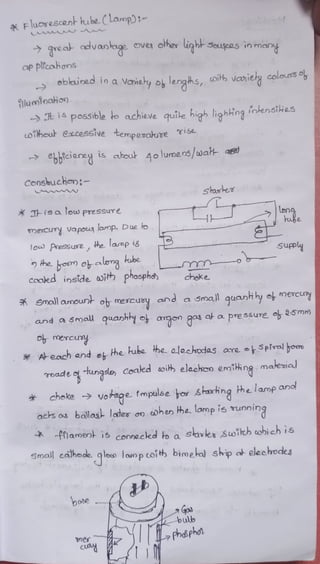 * Fluorescent tube (Lamp):-
→ great advantage over other light sources in many
applications
→ obtained in a variety of lengths, with variety colours of
illumination
→ It is possible to achieve quite high lighting intensities
without excessive temperature rise
→ efficiency is about 40 lumens/watt
Construction:-
starter
* It is a low pressure
mercury vapour lamp. Due to
low Pressure, the lamp is
in the form of along tube
coated inside with phosphor
long
tube
supply
choke
* small amount of mercury and a small quantity of mercury
and a small quantity of argon gas at a pressure of 2.5mm
of mercury
* At each end of the tube the electrodes are of spiral form
made of tungsten coated with electron emitting material
* choke → voltage impulse for starting the lamp and
acts as ballast later on when the lamp is running
* filament is connected to a starter switch which is
small cathode glow lamp with bimetal strip at electrodes
base
Gas
bulb
phosphor
mer
cury